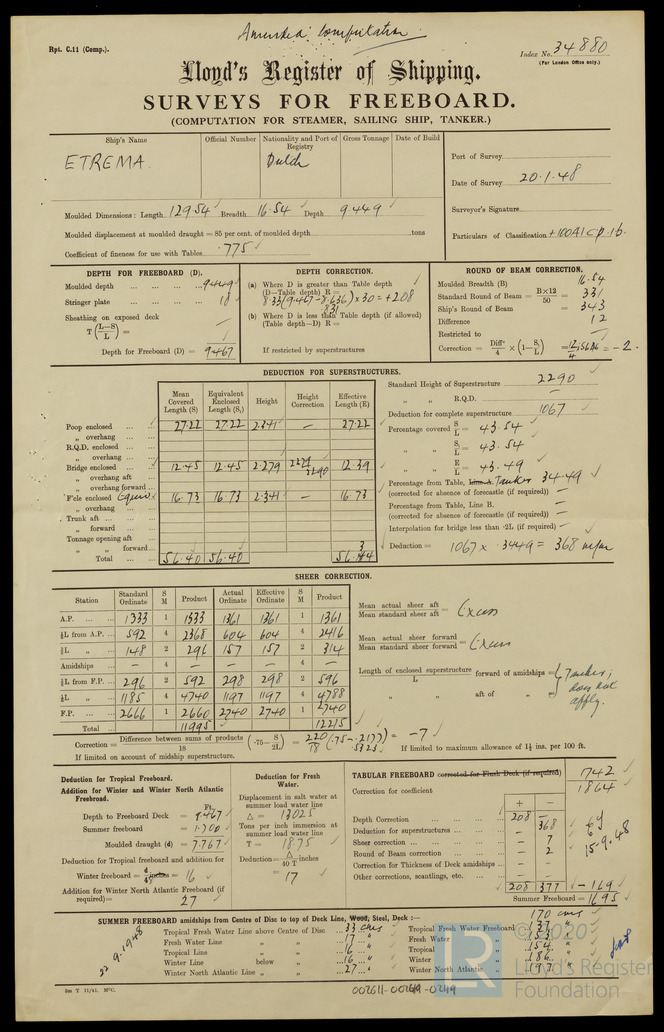 Amended Computation
Rpt. C.11 (Comp.).
Index No. 34880
(For London Office only.)
Lloyd's Register of Shipping.
SURVEYS FOR FREEBOARD.
(COMPUTATION FOR STEAMER, SAILING SHIP, TANKER.)
Ship's Name Official Number Nationality and Port of Registry Gross Tonnage Date of Build
ETREMA. Dutch
Port of Survey
Date of Survey 20.1.48
Surveyor's Signature
Particulars of Classification +100A1 CP. 1b.
Moulded Dimensions: Length 129.54 Breadth 16.54 Depth 9.449
Moulded displacement at moulded draught = 85 per cent. of moulded depth tons
Coefficient of fineness for use with Tables .775
DEPTH FOR FREEBOARD (D).
Moulded depth 9.449
Stringer plate 18
Sheathing on exposed deck
T (L—S/L) =
Depth for Freeboard (D) = 9.467
DEPTH CORRECTION.
(a) Where D is greater than Table depth
(D—Table depth) R =
8.33 (9.467 - 8.636) × 30 = +208
831
(b) Where D is less than Table depth (if allowed)
(Table depth—D) R =
If restricted by superstructures
ROUND OF BEAM CORRECTION.
Moulded Breadth (B) 16.54
Standard Round of Beam = B×12/50 = 331
Ship's Round of Beam = 343
Difference 12
Restricted to
Correction = Diffce/4 × (1—S₁/L) = 12/4 × .5646 = -2.
DEDUCTION FOR SUPERSTRUCTURES.
Mean Covered Length (S) Equivalent Enclosed Length (S₁) Height Height Correction Effective Length (E)
Poop enclosed 27.22 27.22 2.341 — 27.22
„ overhang
R.Q.D. enclosed
„ overhang
Bridge enclosed 12.45 12.45 2.279 2279/2290 12.39
„ overhang aft
„ overhang forward
F'cle enclosed Equiv. 16.73 16.73 2.341 — 16.73
„ overhang
Trunk aft
„ forward
Tonnage opening aft
„ „ forward
Total 56.40 56.40 56.34
Standard Height of Superstructure 2290
„ „ R.Q.D. —
Deduction for complete superstructure 1067
Percentage covered S/L = 43.54
„ „ S₁/L = 43.54
„ „ E/L = 43.49
Percentage from Table, Line A. Tanker 34.49
(corrected for absence of forecastle (if required)) —
Percentage from Table, Line B.
(corrected for absence of forecastle (if required)) —
Interpolation for bridge less than ·2L (if required) —
Deduction = 1067 × .3449 = 368 m/m
SHEER CORRECTION.
Station Standard Ordinate S M Product Actual Ordinate Effective Ordinate S M Product
A.P. 1333 1 1333 1361 1361 1 1361
⅙L from A.P. 592 4 2368 604 604 4 2416
⅓L „ 148 2 296 157 157 2 314
Amidships — 4 — — — 4 —
⅓L from F.P. 296 2 592 298 298 2 596
⅙L „ 1185 4 4740 1197 1197 4 4788
F.P. 2666 1 2666 2740 2740 1 2740
Total 11995 12215
Mean actual sheer aft / Mean standard sheer aft = Excess
Mean actual sheer forward / Mean standard sheer forward = Excess
Length of enclosed superstructure / L forward of amidships = Tanker;
„ „ aft of „ = does not apply.
Correction = Difference between sums of products/18 (·75—S/2L) = 220/18 (.75-.2177) = -7
.5323
If limited on account of midship superstructure.
If limited to maximum allowance of 1½ ins. per 100 ft.
Deduction for Tropical Freeboard.
Addition for Winter and Winter North Atlantic Freeboard.
Ft.
Depth to Freeboard Deck = 9.467
Summer freeboard = 1.700
Moulded draught (d) = 7.767
Deduction for Tropical freeboard and addition for
Winter freeboard = d/4 inches = 16
Addition for Winter North Atlantic Freeboard (if required) = 27
Deduction for Fresh Water.
Displacement in salt water at summer load water line
Δ = 13025
Tons per inch immersion at summer load water line
T = 18.75
Deduction = Δ/40T inches
= 17
TABULAR FREEBOARD corrected for Flush Deck (if required) 1742
Correction for coefficient 1864
+ —
Depth Correction 208
Deduction for superstructures — 368
Sheer correction — 7
Round of Beam correction — 2
Correction for Thickness of Deck amidships — —
Other corrections, scantlings, etc. — —
208 377 -169
Summer Freeboard = 1695
15-9.48
SUMMER FREEBOARD amidships from Centre of Disc to top of Deck Line, Wood, Steel, Deck:— 170 cms
Tropical Fresh Water Line above Centre of Disc 33 cms Tropical Fresh Water Freeboard 137 „
Fresh Water Line „ „ 17 „ Fresh Water „ 153 „
Tropical Line „ „ 16 „ Tropical „ 154 „
Winter Line below „ 16 „ Winter „ 186 „
Winter North Atlantic Line „ „ 27 „ Winter North Atlantic „ 197 „
9.1948
5m T 11/41. MᶜC.
002611-002619-0249
LR
© 2020
Lloyd's Register
Foundation